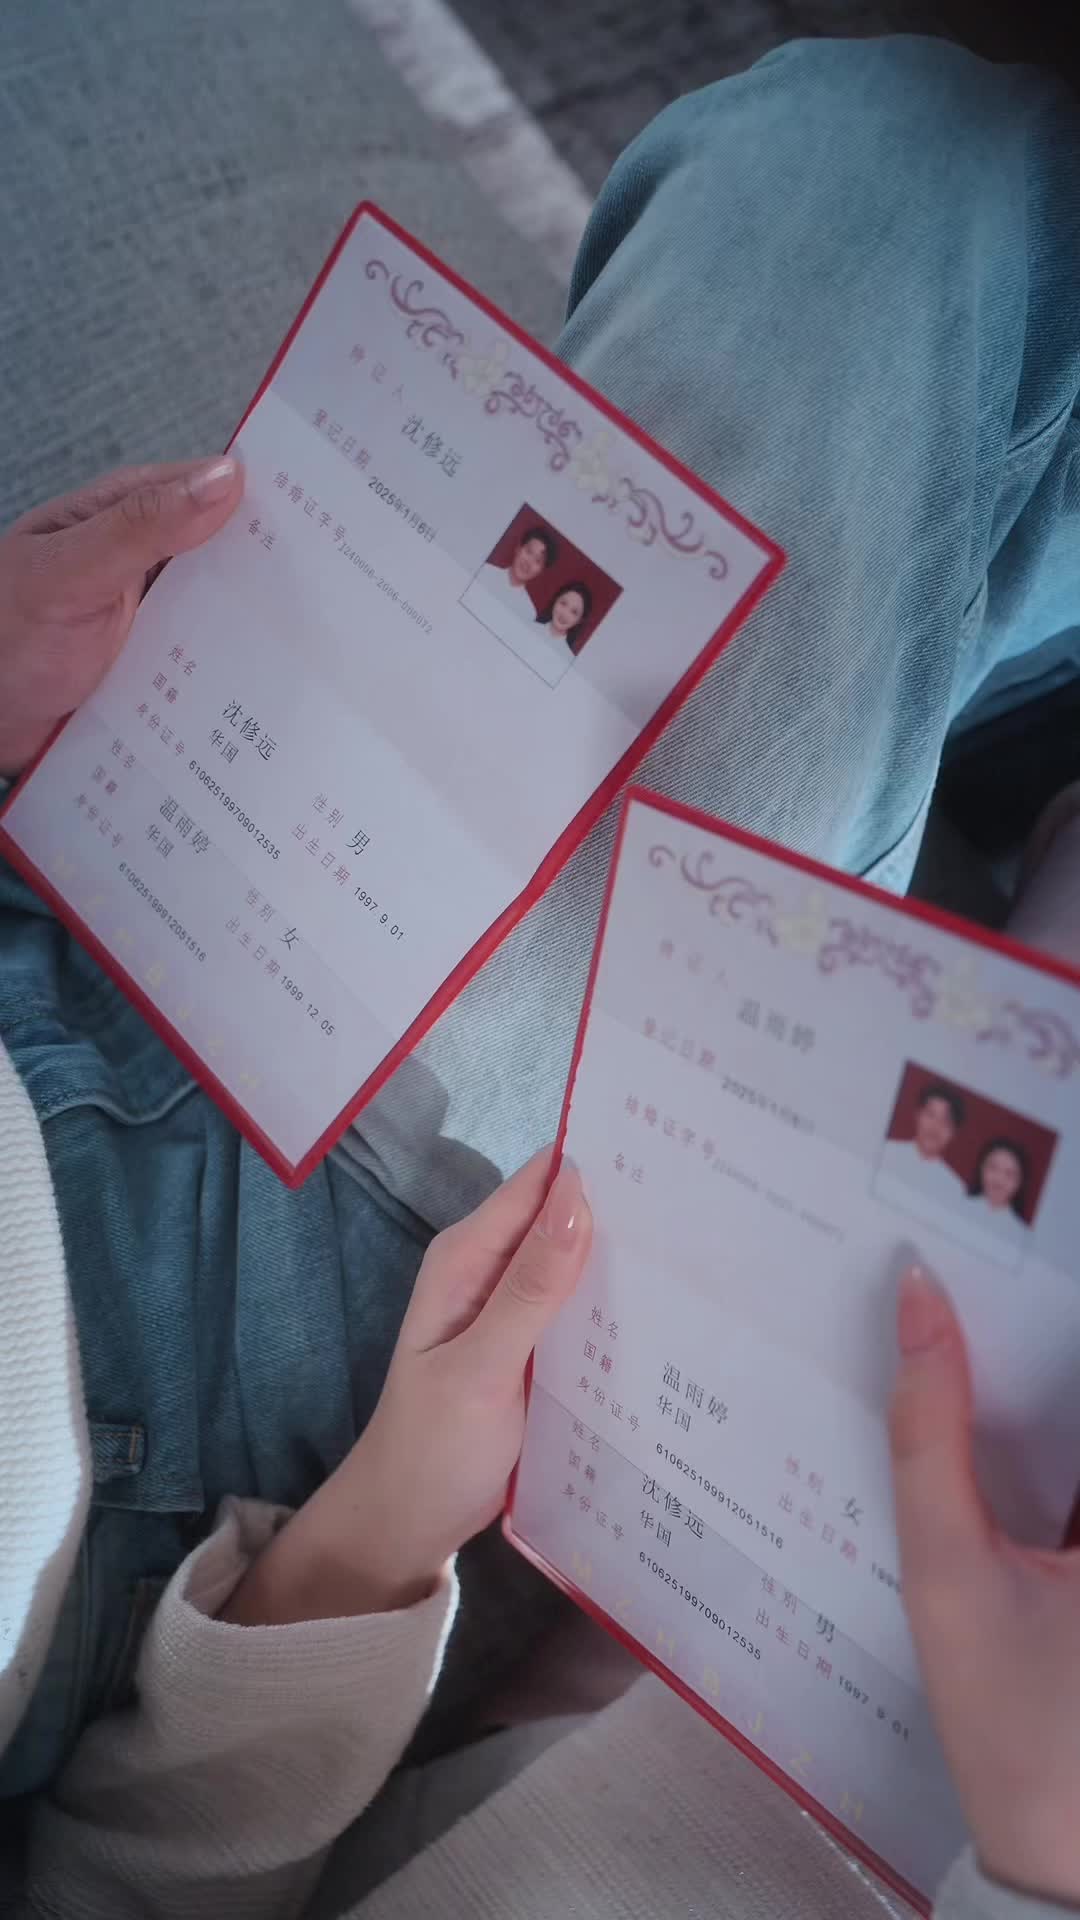 持证人 沈修远
登记日期 2025年1月6计
结婚证字号 J240056-2006-000072
备注
姓名 沈修远 性别 男
国籍 华国 出生日期 1997.9.01
身份证号 610625199709012535
姓名 温雨婷 性别 女
国籍 华国 出生日期 1999.12.05
身份证号 610625199912051516
持证人 温雨婷
登记日期
结婚证字号
备注
姓名 温雨婷 性别 女
国籍 华国 出生日期
身份证号 610625199912051516
姓名 沈修远 性别 男
国籍 华国 出生日期 1997.9.01
身份证号 610625199709012535
M Z H B J Z H